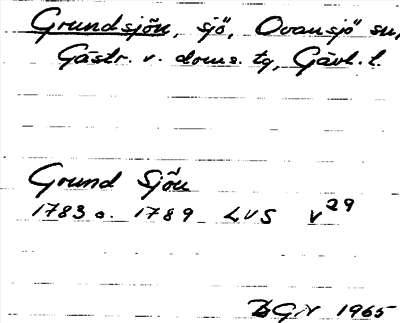 Grundsjön, sjö, Ovansjö sn,
Gästr. v. doms. tg, Gävl. l.
Grund Sjön
1783 o. 1789 LVS V29
1965